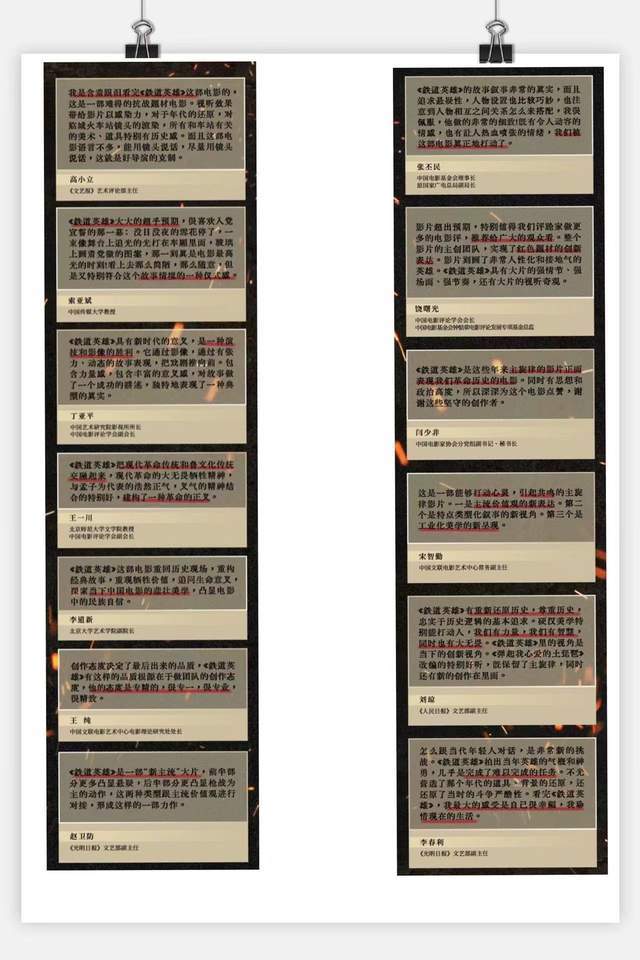 我是含着眼泪看完《铁道英雄》这部电影的，
这是一部难得的抗战题材电影。视听效果
带给影片以感染力，对于年代的还原，对
临城火车站镜头的渲染，所有和车站有关
的美术、道具特别有历史感。而且这部电
影语言不多，能用镜头说话，尽量用镜头
说话，这就是好导演的克制。
高小立
《文艺报》艺术评论部主任
《铁道英雄》大大的超乎预期，很喜欢入党
宣誓的那一幕：没日没夜的雪花停了，一
束像舞台上追光的光打在车厢里面，玻璃
上画着党徽的图案，那一刻真是电影最高
光的时刻!看上去那么简陋，那么随意，但
是又特别符合这个故事情境的一种仪式感。
索亚斌
中国传媒大学教授
《铁道英雄》具有新时代的意义，是一种演
技和影像的胜利。它通过影像，通过有张
力、动态的故事表现，把戏剧推向前。包
含力量感，包含丰富的意义感，对故事做
了一个成功的讲述，独特地表现了一种典
型的真实。
丁亚平
中国艺术研究院影视所所长
中国电影评论学会副会长
《铁道英雄》把现代革命传统和鲁文化传统
交融起来，现代革命的大无畏牺牲精神，
与孟子为代表的浩然正气，义气的精神结
合的特别好，建构了一种革命的正义。
王一川
北京师范大学文学院教授
中国电影评论学会副会长
《铁道英雄》这部电影重回历史现场，重构
经典故事，重观牺牲价值，追问生命意义，
探索当下中国电影的悲壮美学，凸显电影
中的民族自信。
李道新
北京大学艺术学院副院长
创作态度决定了最后出来的品质，《铁道英
雄》有这样的品质根源在于做团队的创作态
度，他的态度是专精的，很专一，很专业，
很精致。
王 纯
中国文联电影艺术中心电影理论研究处处长
《铁道英雄》是一部“新主流”大片，前半部
分更多凸显悬疑，后半部分更凸显枪战为
主的动作，这两种类型跟主流价值观进行
对接，形成这样的一部力作。
赵卫防
《光明日报》文艺部副主任
《铁道英雄》的故事叙事非常的真实，而且
追求悬疑性，人物设置也比较巧妙，也注
意到人物相互之间关系怎么来搭配，我很
佩服，他做的非常的细致!既有令人动容的
情感，也有让人热血喷张的情绪，我们被
这部电影真正地打动了。
张丕民
中国电影基金会理事长
原国家广电总局副局长
影片超出预期，特别值得我们评论家做更
多的电影评，推荐给广大的观众看。整个
影片的主创团队，实现了红色题材的创新
表达。影片刻画了非常人性化和接地气的
英雄。《铁道英雄》具有大片的强情节、强
场面、强节奏，还有大片的视听奇观。
饶曙光
中国电影评论学会会长
中国电影基金会钟惦棐电影评论发展专项基金总监
《铁道英雄》是这些年来主旋律的影片正面
表现我们革命历史的电影。同时有思想和
政治高度，所以深深为这个电影点赞，谢
谢这些坚守的创作者。
闫少非
中国电影家协会分党组副书记、秘书长
这是一部能够打动心灵，引起共鸣的主旋
律影片。一是主流价值观的新表达。第二
个是特点类型化叙事的新视角。第三个是
工业化美学的新呈现。
宋智勤
中国文联电影艺术中心常务副主任
《铁道英雄》有重新还原历史，尊重历史，
忠实于历史逻辑的基本追求。硬汉美学特
别能打动人，我们有力量，我们有智慧，
同时也有大无畏。《铁道英雄》里的视角是
当下的创新视角。《弹起我心爱的土琵琶》
改编的特别好听，既保留了主旋律，同时
还有新的创作在里面。
刘琼
《人民日报》文艺部副主任
怎么跟当代年轻人对话，是非常新的挑
战。《铁道英雄》拍出当年英雄的气概和神
勇，几乎是完成了难以完成的任务。不光
营造了那个年代的道具、背景的还原，还
还原了当时的斗争严酷性。看完《铁道英
雄》，我最大的感受是自己很幸福，我珍
惜现在的生活。
李春利
《光明日报》文艺部副主任